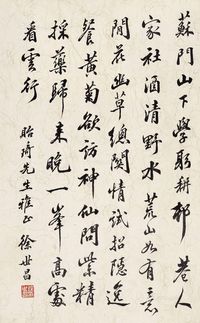 蘇門山下學躬耕邨巷人
家社酒清野水荒山如有意
閒花幽草總關情試招隱逸
餐黃菊欲訪神仙問紫精
採藥歸來晚一峯高處
看雲行
貽琦先生雅正 徐世昌